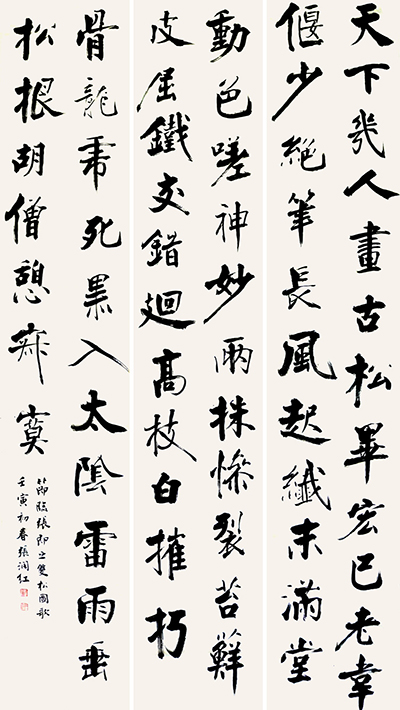 天下幾人畫古松畢宏已老韋
偃少絕筆長風起纖末滿堂
動色嗟神妙兩株慘裂苔蘚
皮屈鐵交錯迴高枝白摧朽
骨龍虎死黑入太陰雷雨垂
松根胡僧憩寂寞
節臨張即之雙松圖歌
壬寅初春張潤紅